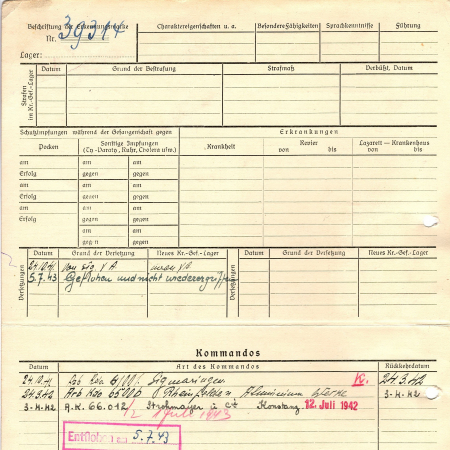 Beschriftung der Erkennungsmarke
Nr. 39314
Lager:
Charaktereigenschaften u. a.
Besondere Fähigkeiten
Sprachkenntnisse
Führung
Strafen im Kr.-Gef.-Lager
Datum
Grund der Bestrafung
Strafmaß
Verbüßt, Datum
Schutzimpfungen während der Gefangenschaft gegen
Erkrankungen
Pocken
Sonstige Impfungen
(Ty.-Paraty., Ruhr, Cholera usw.)
Krankheit
Revier
von bis
Lazarett — Krankenhaus
von bis
am am am
Erfolg gegen gegen
am am am
Erfolg gegen gegen
am am am
Erfolg gegen gegen
am am
gegen gegen
Versetzungen
Datum
Grund der Versetzung
Neues Kr.-Gef.-Lager
Versetzungen
Datum
Grund der Versetzung
Neues Kr.-Gef.-Lager
24.10.41 V A
5.7.43 Geflohen und nicht wiederergriffen
Kommandos
Datum
Art des Kommandos
Rückkehrdatum
24.10.41 Sigmaringen K. 24.3.42
24.3.42 Arb. Kdo 65000 Rheinfelden Aluminium Werke 3.4.42
3.4.42 A.K. 66.012 Strohmayer u. Co Konstanz 12. Juli 1942
April 1943
Entflohen am 5.7.43